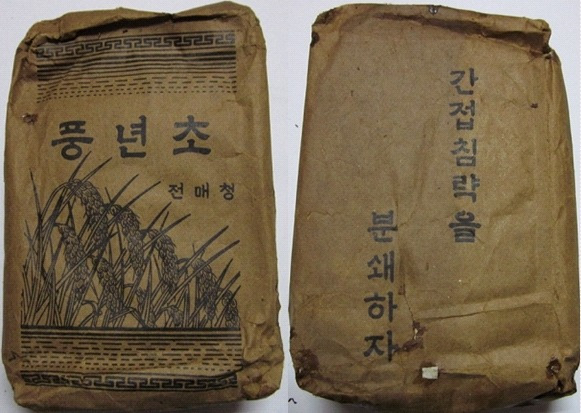 풍년초
전매청
간접침략을
분쇄하자